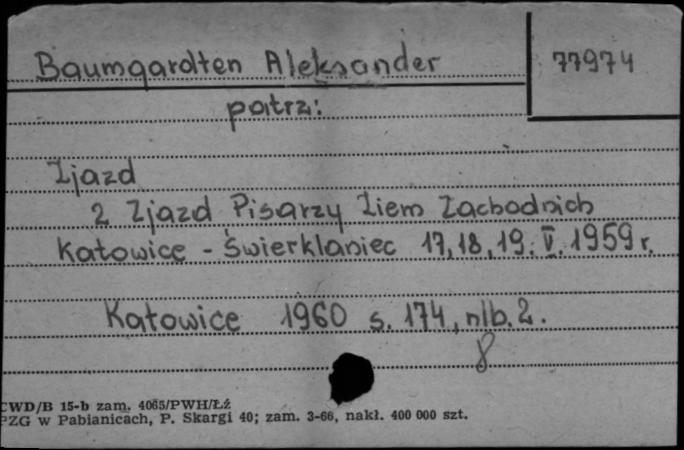 Baumgardten Aleksander
77974
patrz:
Zjazd
2 Zjazd Pisarzy Ziem Zachodnich
Katowice - Świerklaniec 17, 18, 19. V. 1959 r.
Katowice 1960 s. 174, nlb. 2.
8
CWD/B 15-b zam. 4065/PWH/Łź
PZG w Pabianicach, P. Skargi 40; zam. 3-66, nakł. 400 000 szt.